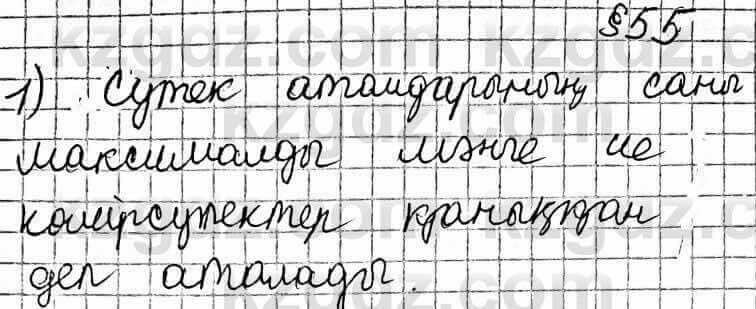 §55
1) Сутек атомдарының саны
максималды мәнге ие
көмірсутектер қаныққан
деп аталады.
kzgdz.com